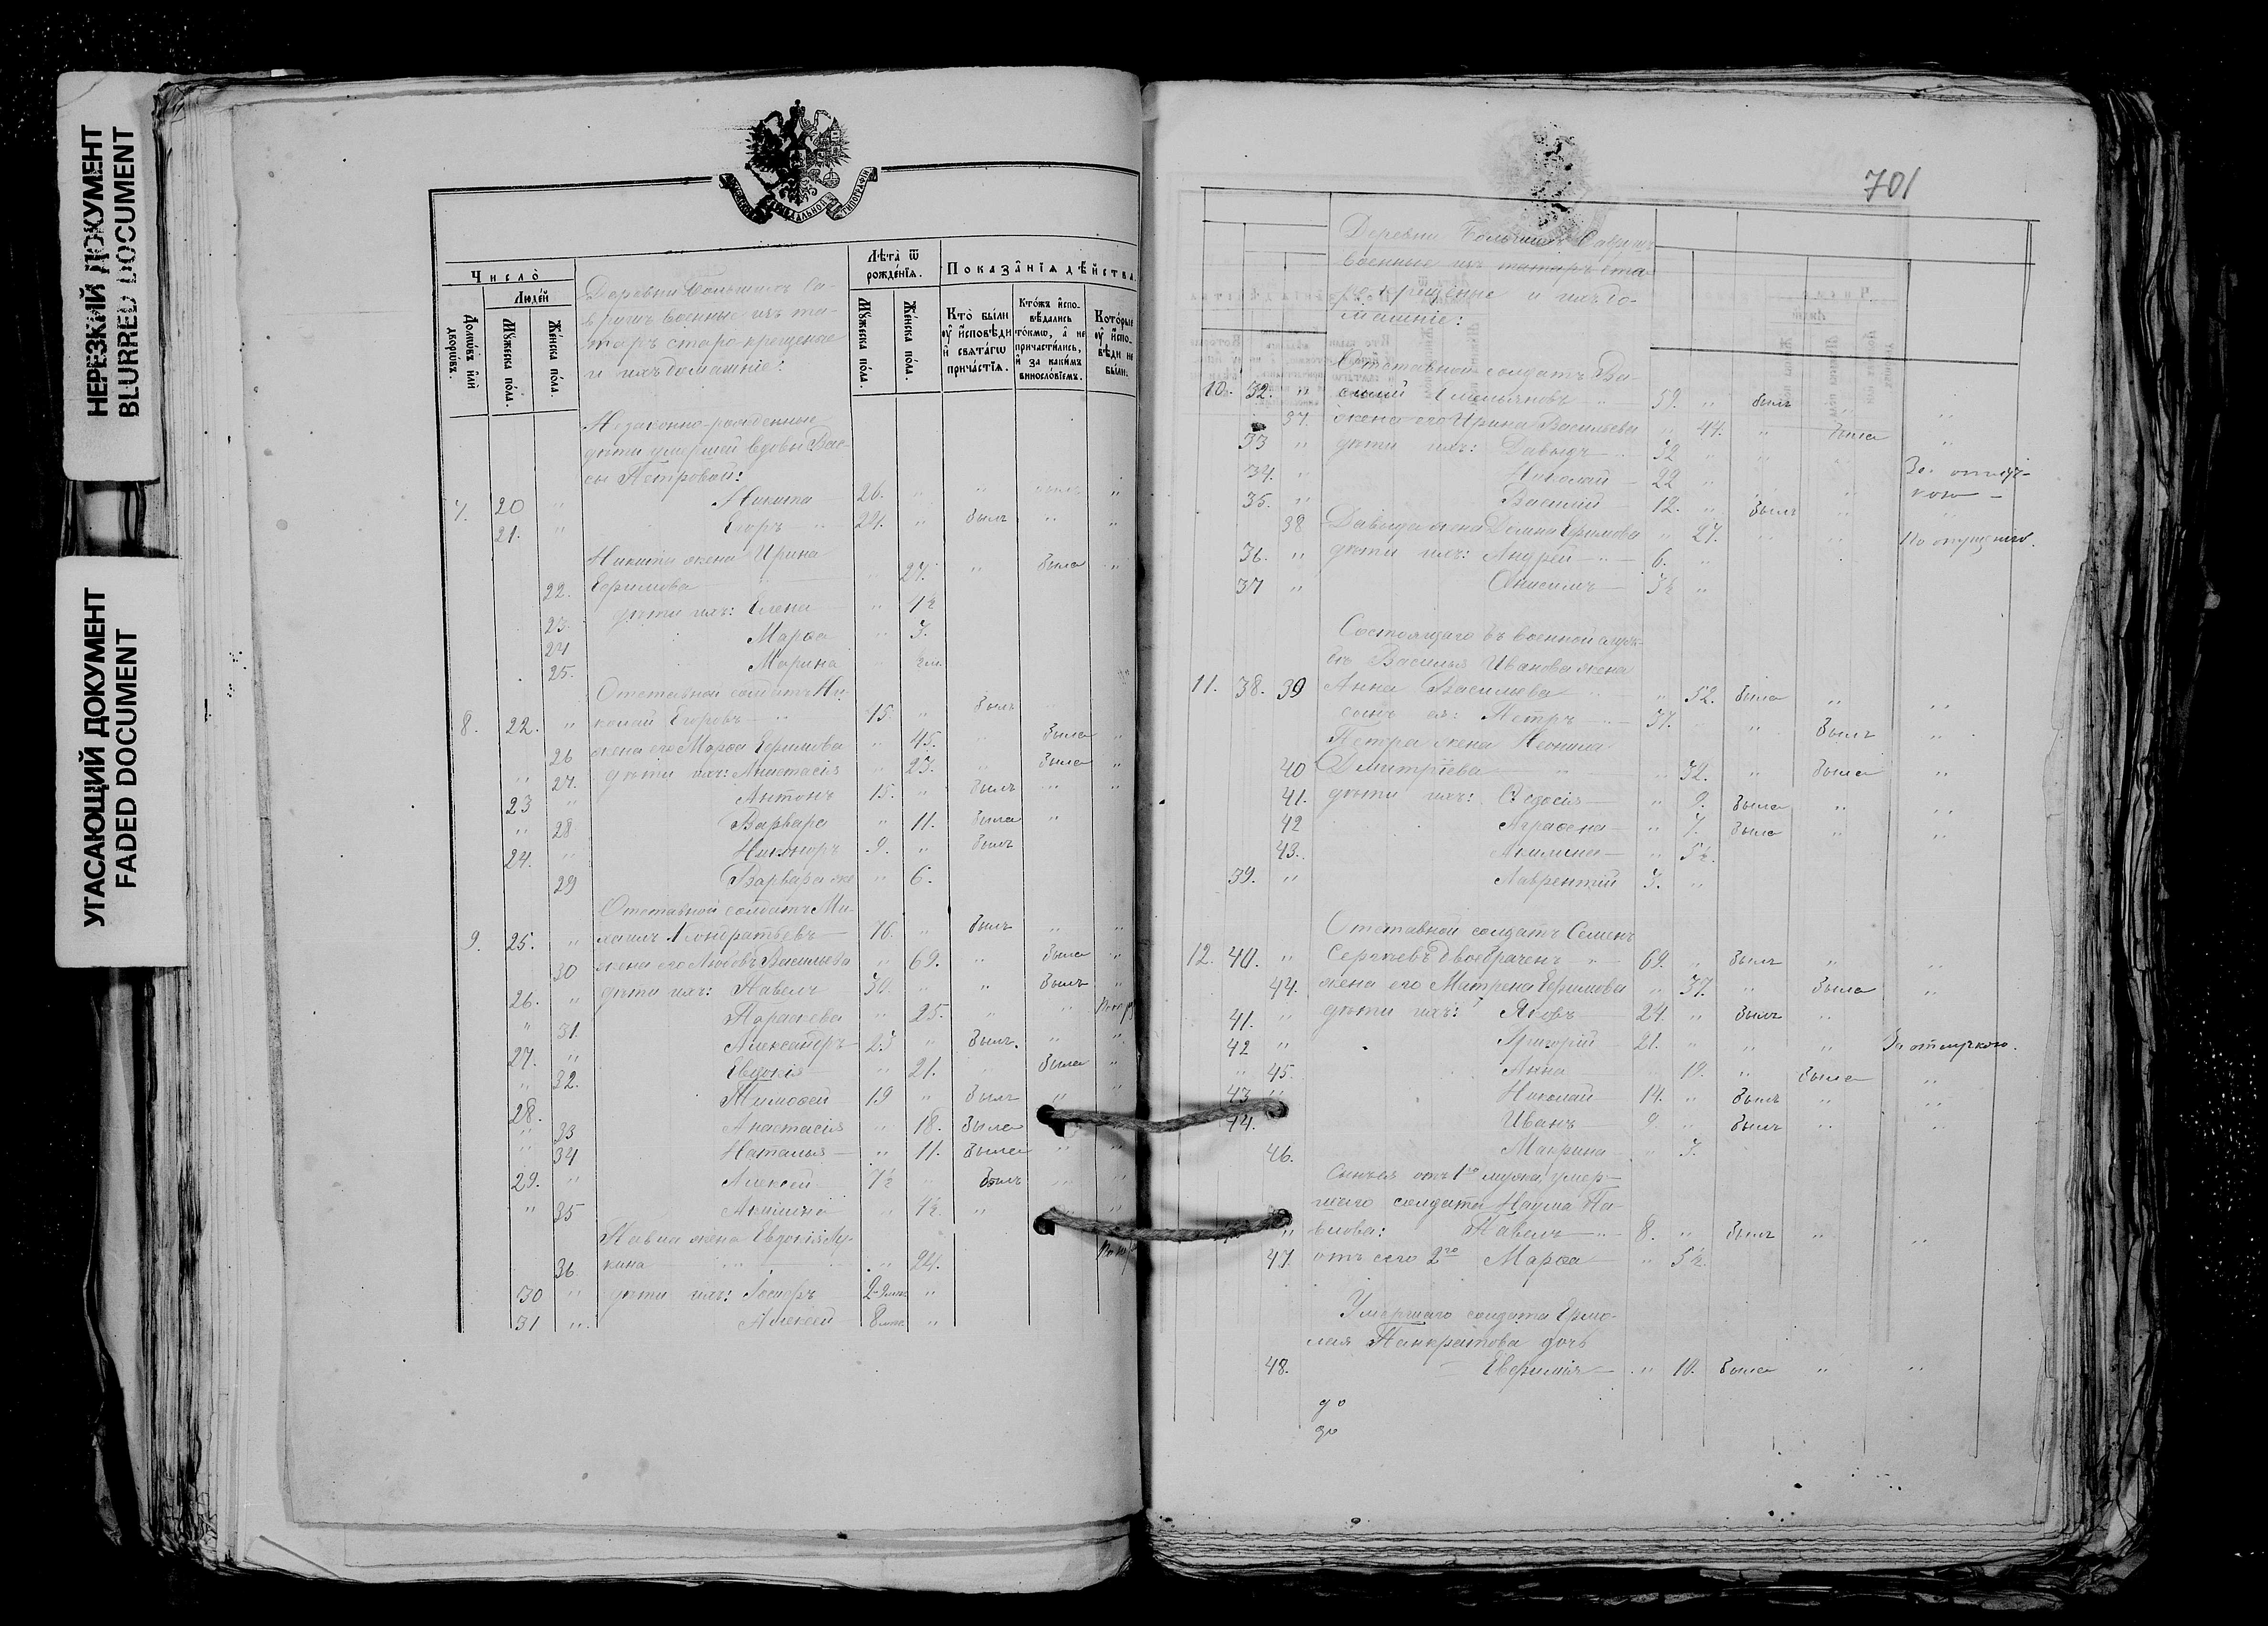 НЕРЕЗКИЙ ДОКУМЕНТ
BLURRED DOCUMENT
УГАСАЮЩИЙ ДОКУМЕНТ
FADED DOCUMENT
СѴНОДАЛЬНОЙ ТИПОГРАФІИ
Число̀
Люде́й
Домѡ́въ и҆лѝ дворѡ́въ.
Мꙋ́жеска по́ла.
Же́нска по́ла.
Деревни Большихъ Са-
врушъ военные изъ та-
таръ старокрещеные
и ихъ домашніе:
Лѣ́та ѿ рожде́нїѧ.
Мꙋ́жеска по́ла.
Же́нска по́ла.
Показа̑нїѧ дѣ́йства.
Кто̀ бы́ли ᲂу҆ и҆сповѣ́ди и҆ свѧта́гѡ прича́стїѧ.
Кто́жъ и҆спо- вѣ́дались то́кмѡ, а҆ не причасти́лись, и҆ за каки́мъ винословїемъ.
Кото́рые ᲂу҆ и҆спо- вѣ́ди не бы́ли.
Незаконно-рожденные
дѣти умершей вдовы Вас-
сы Петровой:
7. 20 " Никита 26. " " "
21. " Егоръ 24. " былъ " "
Никиты жена Ирина
22. Ефимова " 27. " была "
23. дѣти ихъ: Елена " 4½
24 Марѳа " 3.
25. Марина "
Отставной солдатъ Ни-
8. 22. " колай Егоровъ " 75. " былъ
26 жена его Марѳа Ефимова " 45. " была "
" 27. дѣти ихъ: Анастасія " 23. " была "
23 " Антонъ 15. " былъ " "
" 28 Варвара " 11. была "
24. " Никаноръ 9. " былъ
29 Варвара же " 6.
Отставной солдатъ Ми-
9. 25. " хаилъ Кондратьевъ 76. " былъ " "
30 жена его Любовь Васильева " 69. " была "
26. " дѣти ихъ: Павелъ 30. " " былъ "
" 31. Параскева " 25. " "
27. " Александръ 23 " былъ. " "
" 32. Евдокія " 21. была "
28. Тимоѳей 19 " былъ " "
" 33 Анастасія " 18. была
" 34 Наталья " 11. была " "
29. " Алексей 7½ былъ "
" 35 " 4½ " " "
Павла жена Евдокія Лу-
36 кина " 24.
30 " дѣти ихъ: "
31 " Алексей 8 мѣс "
701
Деревни Большихъ Саврушъ
военные изъ татаръ ста-
рокрещеные и ихъ до-
машніе:
Отставной солдатъ Ва-
10. 32. " силій Емельяновъ 59. " былъ "
37. жена его Ирина Васильева " 44. " была "
33 " дѣти ихъ: Давыдъ 32 " "
34. " Николай 22 " За отлуч-
кою
35. " Василій 12. " былъ " "
38 Давыда жена Домна Ефимова " 27. " " По опущенію.
36. " дѣти ихъ: Андрей 6. "
37 " Анисимъ 3½ "
Состоящаго въ военной служ-
бѣ Василья Иванова жена
11. 38. 39 Анна Васильева " 52. была " "
сынъ ея: Петръ 37. " былъ "
Петра жена Неонила
40 Дмитріева " 32. " была "
41. дѣти ихъ: Ѳедосія " 9. была " "
42 Аграѳена " 7. была " "
43. Акилина " 5½.
39. " Лаврентій 3. "
Отставной солдатъ Семенъ
12. 40. " Сергѣевъ двоебраченъ 69. " былъ " "
44. жена его Матрена Ефимова " 37. " была "
41. " дѣти ихъ: Яковъ 24. " былъ "
42 " Григорій 21. " " " За отлучкою.
" 45. Анна 19. " была "
43 " Николай 14. " былъ " "
44. Иванъ 9 " былъ " "
46. Маврина " 3.
Сынъ ея отъ 1го мужа, умер-
шаго солдата Наума Па-
" влова: Павелъ 8. " былъ " "
47. отъ сего 2го Марѳа " 5½.
Умершаго солдата Ермо-
лая Панкратова дочь
48. Евфимія " 10. была " "
до
до